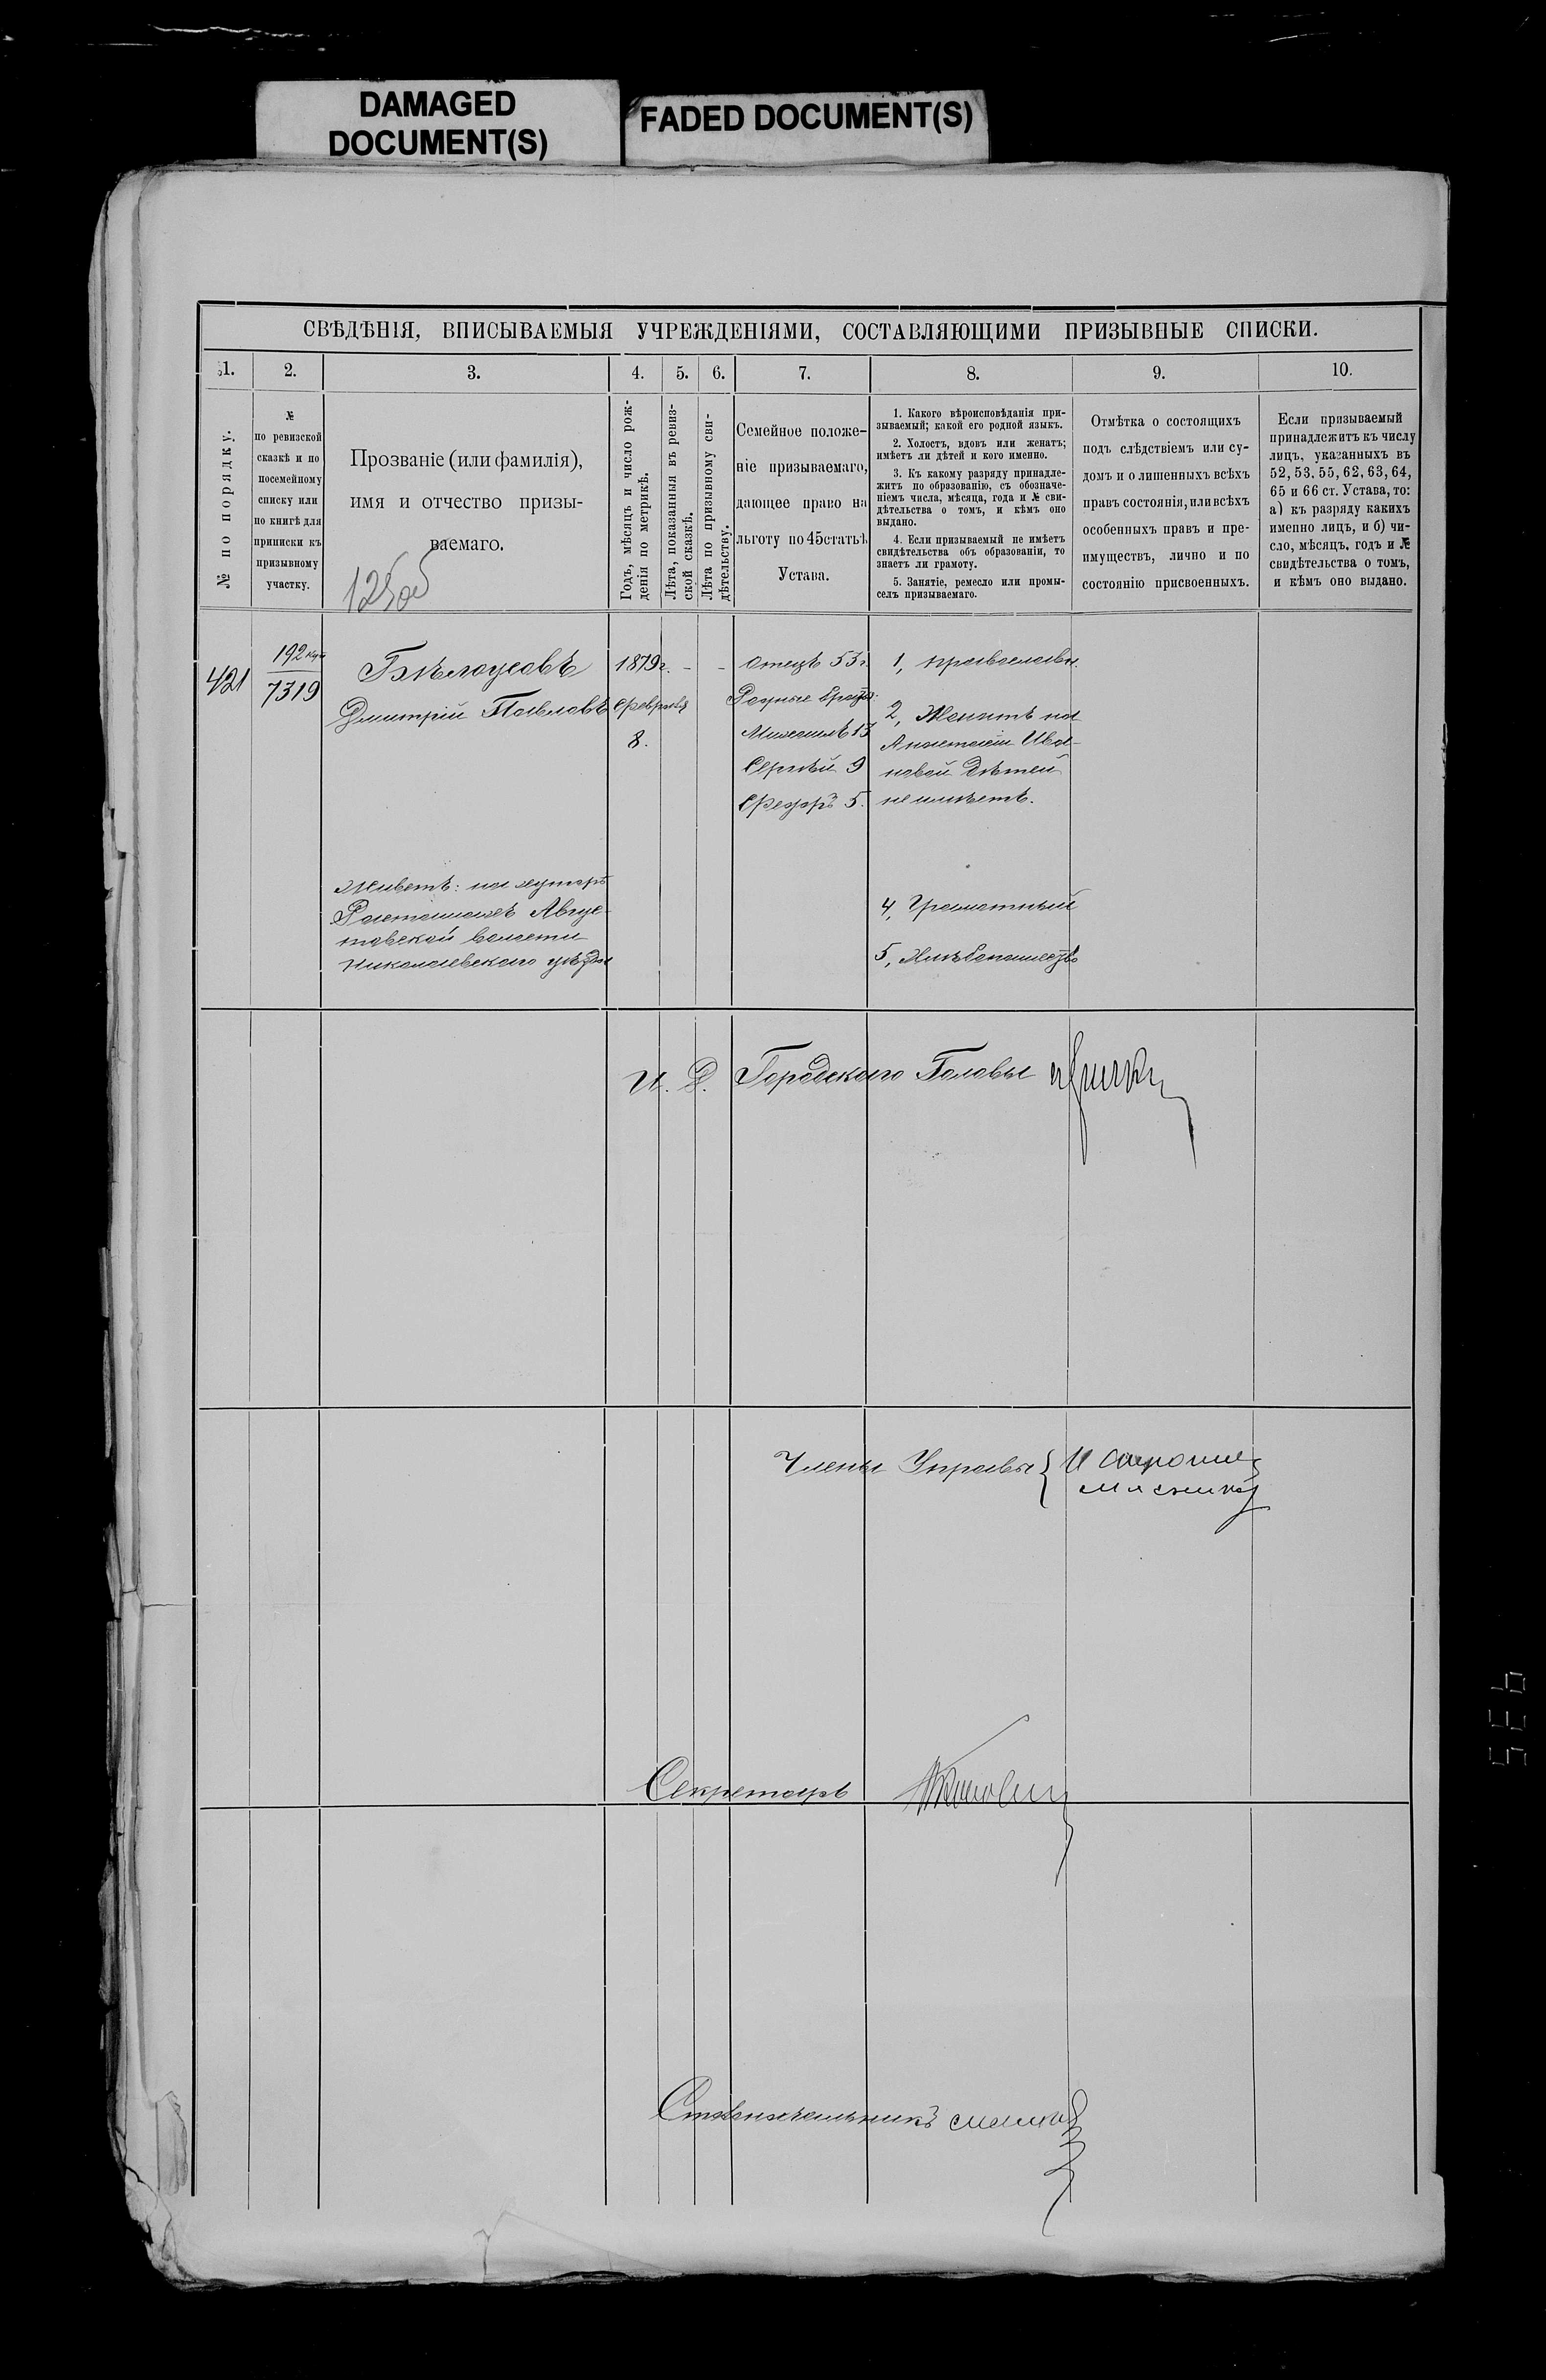 DAMAGED
DOCUMENT(S)
FADED DOCUMENT(S)
СВѢДѢНІЯ, ВПИСЫВАЕМЫЯ УЧРЕЖДЕНІЯМИ, СОСТАВЛЯЮЩИМИ ПРИЗЫВНЫЕ СПИСКИ.
1. 2. 3. 4. 5. 6. 7. 8. 9. 10.
№ по порядку.
№
по ревизской
сказкѣ и по
посемейному
списку или
по книгѣ для
приписки къ
призывному
участку.
Прозваніе (или фамилія),
имя и отчество призы-
ваемаго.
Годъ, мѣсяцъ и число рож-
денія по метрикѣ.
Лѣта, показанныя въ ревиз-
ской сказкѣ.
Лѣта по призывному сви-
дѣтельству.
Семейное положе-
ніе призываемаго,
дающее право на
льготу по 45 статьѣ
Устава.
1. Какого вѣроисповѣданія при-
зываемый; какой его родной языкъ.
2. Холостъ, вдовъ или женатъ;
имѣетъ ли дѣтей и кого именно.
3. Къ какому разряду принадле-
житъ по образованію, съ обозначе-
ніемъ числа, мѣсяца, года и № сви-
дѣтельства о томъ, и кѣмъ оно
выдано.
4. Если призываемый не имѣетъ
свидѣтельства объ образованіи, то
знаетъ ли грамоту.
5. Занятіе, ремесло или промы-
селъ призываемаго.
Отмѣтка о состоящихъ
подъ слѣдствіемъ или су-
домъ и о лишенныхъ всѣхъ
правъ состоянія, или всѣхъ
особенныхъ правъ и пре-
имуществъ, лично и по
состоянію присвоенныхъ.
Если призываемый
принадлежитъ къ числу
лицъ, указанныхъ въ
52, 53, 55, 62, 63, 64,
65 и 66 ст. Устава, то:
а) къ разряду какихъ
именно лицъ, и б) чи-
сло, мѣсяцъ, годъ и №
свидѣтельства о томъ,
и кѣмъ оно выдано.
421
192
7319
Бѣлоусовъ
Дмитрій Павловъ
1879 г.
февраля
8.
-
-
Отецъ 53 г.
Родные братья:
Михаилъ 13
Сергѣй 9
Ѳедоръ 5.
1, православн.
2, Женатъ на
Анастасіи Ива-
новой дѣтей
не имѣетъ.
4, Грамотный
5, Хлѣбопашество
Живетъ: на хуторѣ
Авгус-
товской волости
Николаевскаго уѣзда
И. Д. Городского Головы
Члены Управы {
Секретарь
Столоначальникъ
935